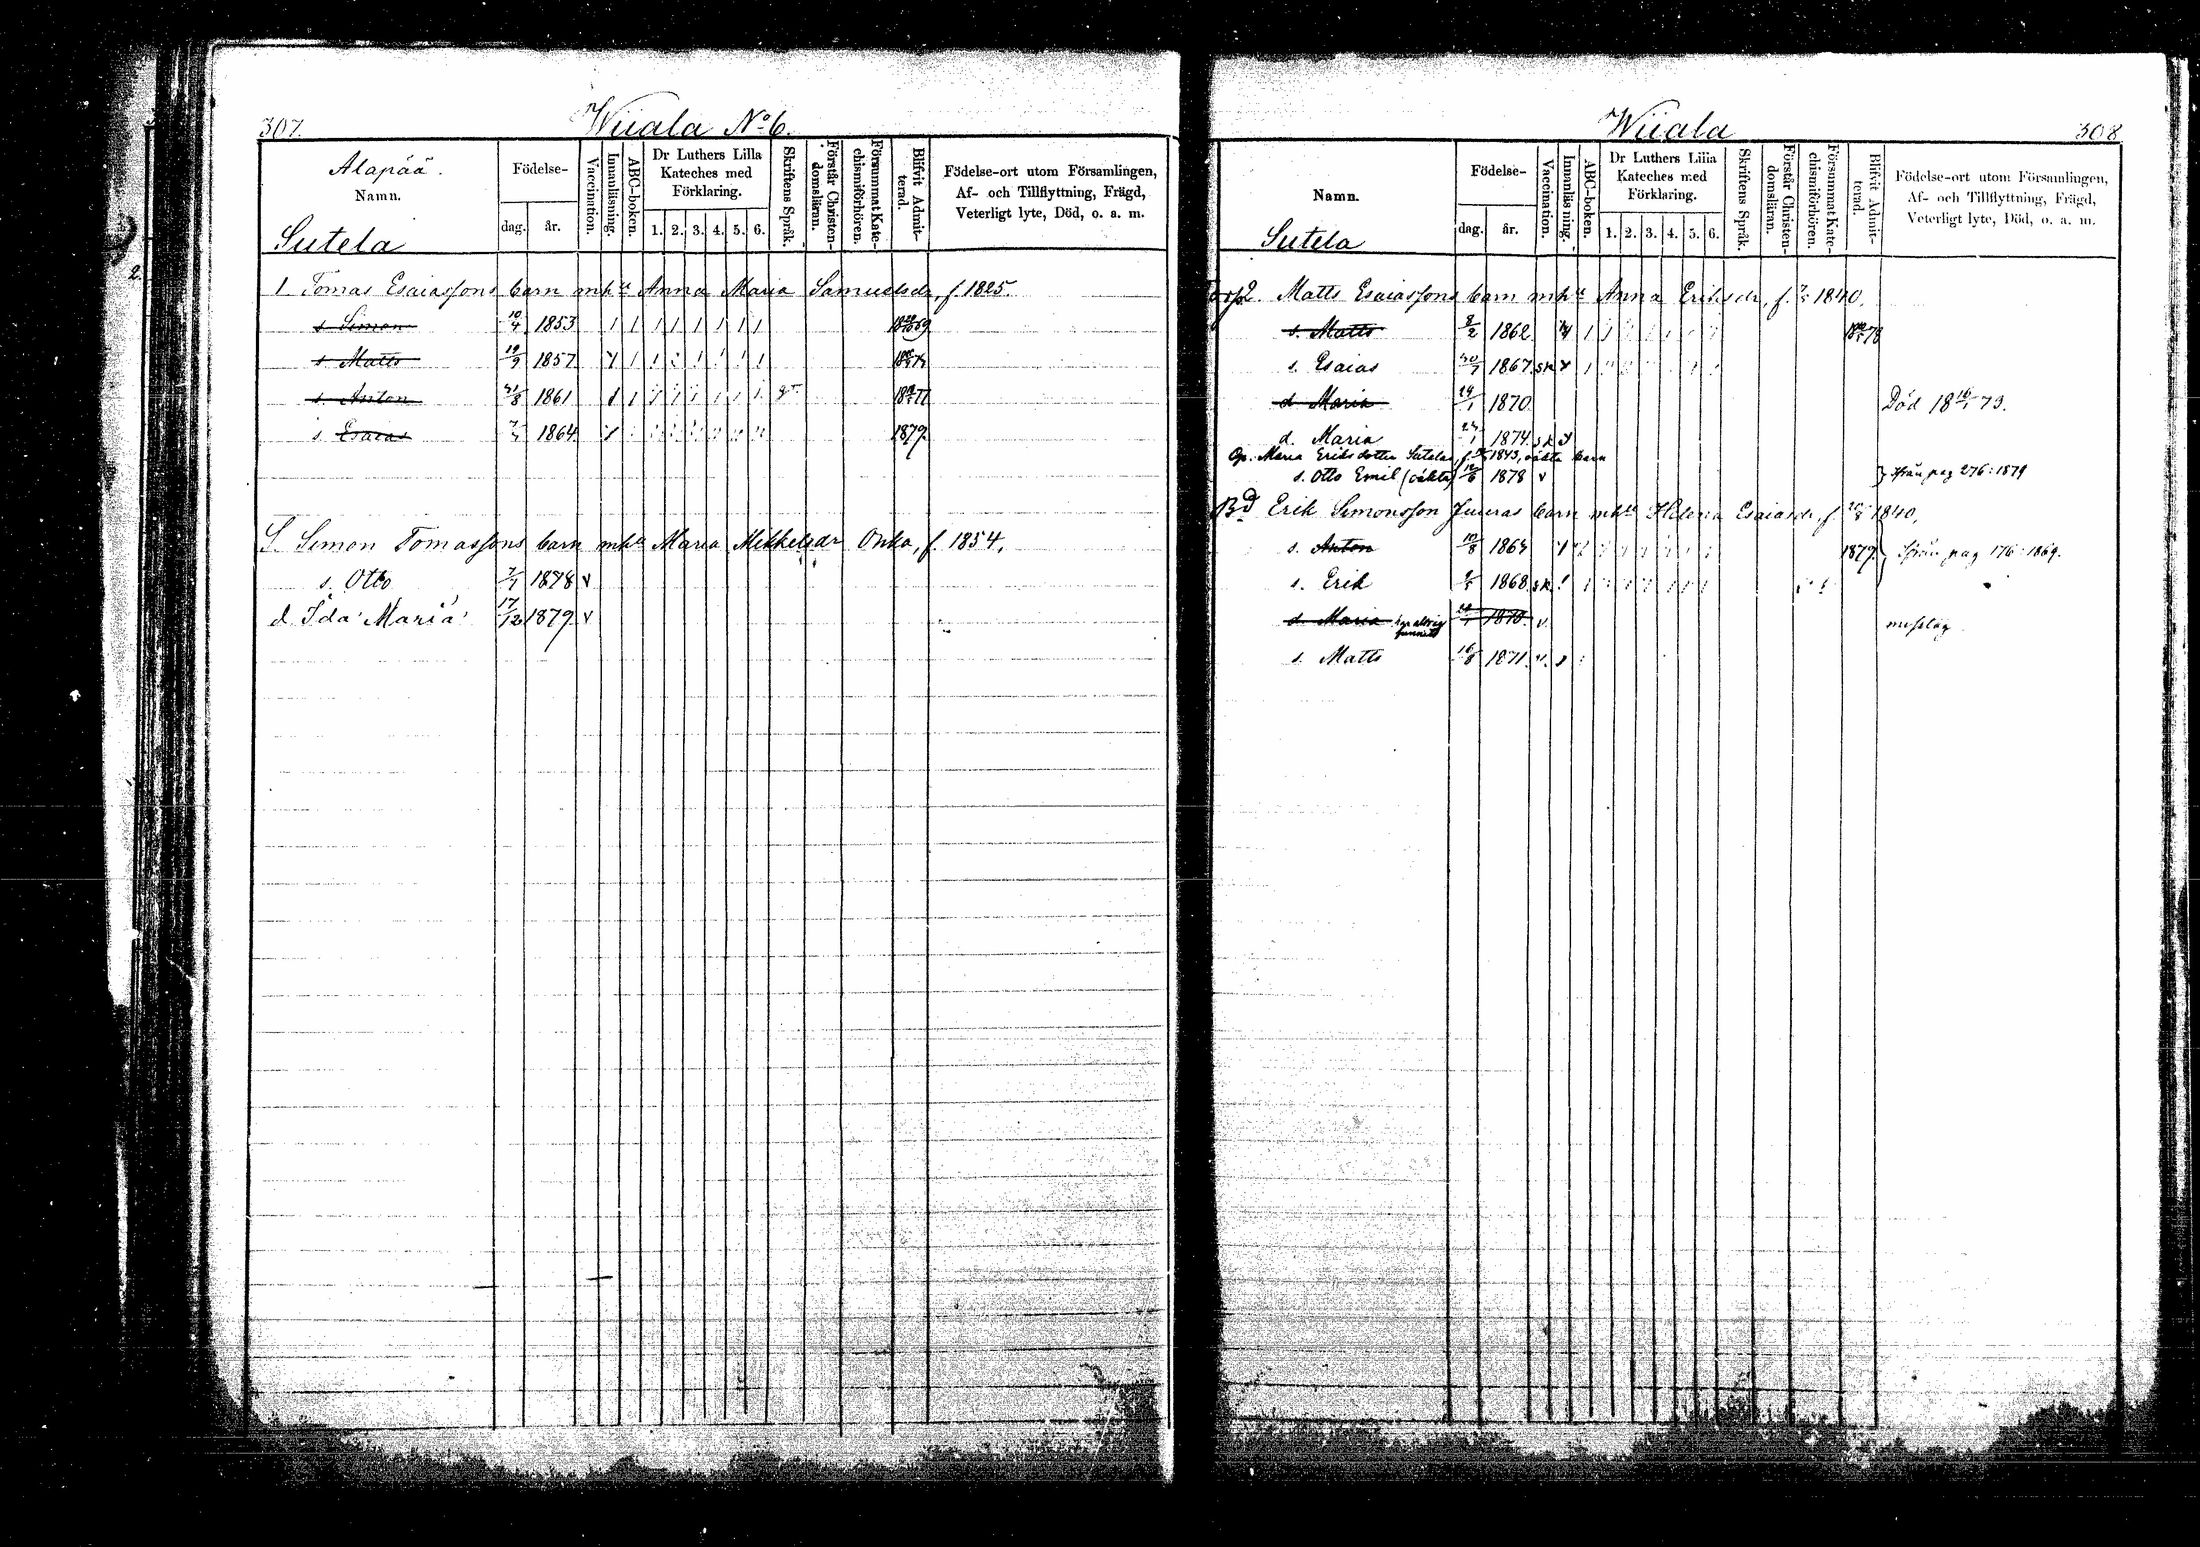 307.
Wiiala No 6.
Alapää.
Namn.
Sutela
Födelse-
dag. år.
Vaccination.
Innanläsning.
ABC-boken.
Dr Luthers Lilla Kateches med Förklaring.
1. 2. 3. 4. 5. 6.
Skriftens Språk.
Förstår Christendomsläran.
Försummat Katechismiförhören.
Blifvit Admitterad.
Födelse-ort utom Församlingen,
Af- och Tillflyttning, Frägd,
Veterligt lyte, Död, o. a. m.
1 Tomas Esaiassons barn m hu Anna Maria Samuelsdr, f 1825.
s Simon 10/4 1853
s Matts 19/9 1857
s. Anton 31/8 1861
s. Esaias 1864 1879.
S. Simon Tomassons barn m hu Maria Mikkelsdr Onka, f. 1854.
s. Otto 7/7 1878 v
d. Ida Maria 17/12 1879 v
Wiiala
308
Namn.
Sutela
Födelse-
dag. år.
Vaccination.
Innanläsning.
ABC-boken.
Dr Luthers Lilla Kateches med Förklaring.
1. 2. 3. 4. 5. 6.
Skriftens Språk.
Förstår Christendomsläran.
Försummat Katechismiförhören.
Blifvit Admitterad.
Födelse-ort utom Församlingen,
Af- och Tillflyttning, Frägd,
Veterligt lyte, Död, o. a. m.
Matts Esaiassons barn m hu Anna Eriksdr, f. 1840.
s. Matts 8/2 1862
s. Esaias 30/7 1867 sk
d Maria 24/1 1870 Död 18 16/1 73.
d. Maria 1874 sk
Maria Eriksdotter Sutela, f. 1843, oäkta barn
s. Otto Emil (oäkta) 1878 v ifrån pag 276: 1879
Bd Erik Simonsson Juuras barn m hu Helena Esaiasdr, f. 1840,
s. Anton 10/8 1864 1877. Ifrån pag 176: 1869.
s. Erik 1868 sk.
d. Maria har aldrig funnits 1870. v. misstag
s. Matts 16/8 1871. v.